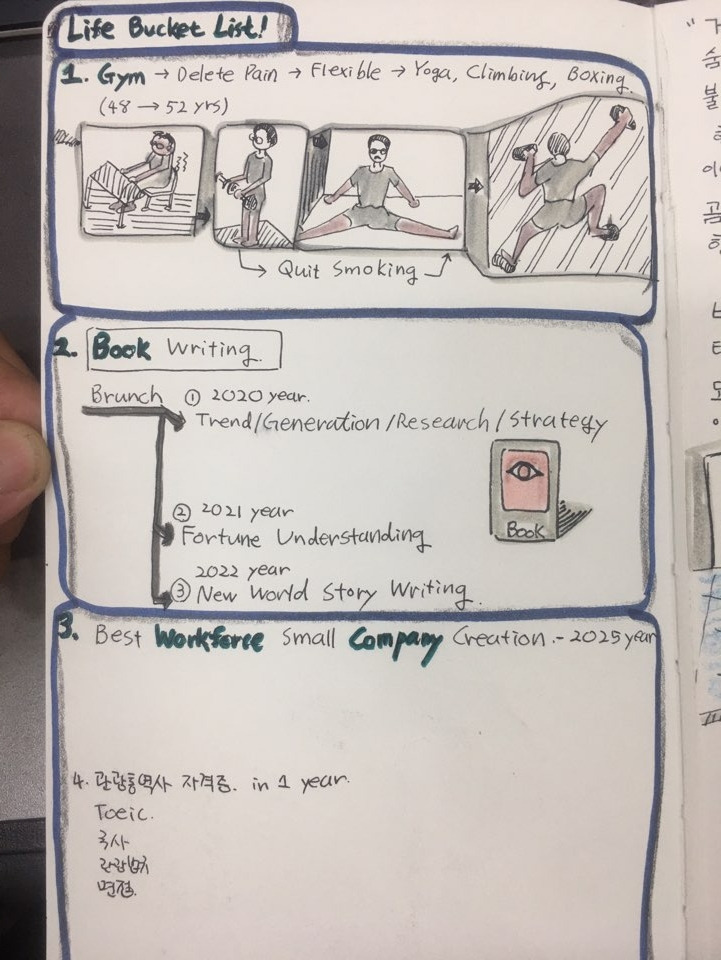 Life Bucket List!
1. Gym → Delete Pain → Flexible → Yoga, Climbing, Boxing.
(48 → 52 yrs)
Quit Smoking
2. Book Writing.
Brunch ① 2020 year.
Trend/Generation/Research/Strategy
Book
② 2021 year
Fortune Understanding
2022 year
③ New World Story Writing.
3. Best Workforce Small Company Creation.- 2025 year
4. 관광통역사 자격증. in 1 year.
Toeic.
국사
면접.